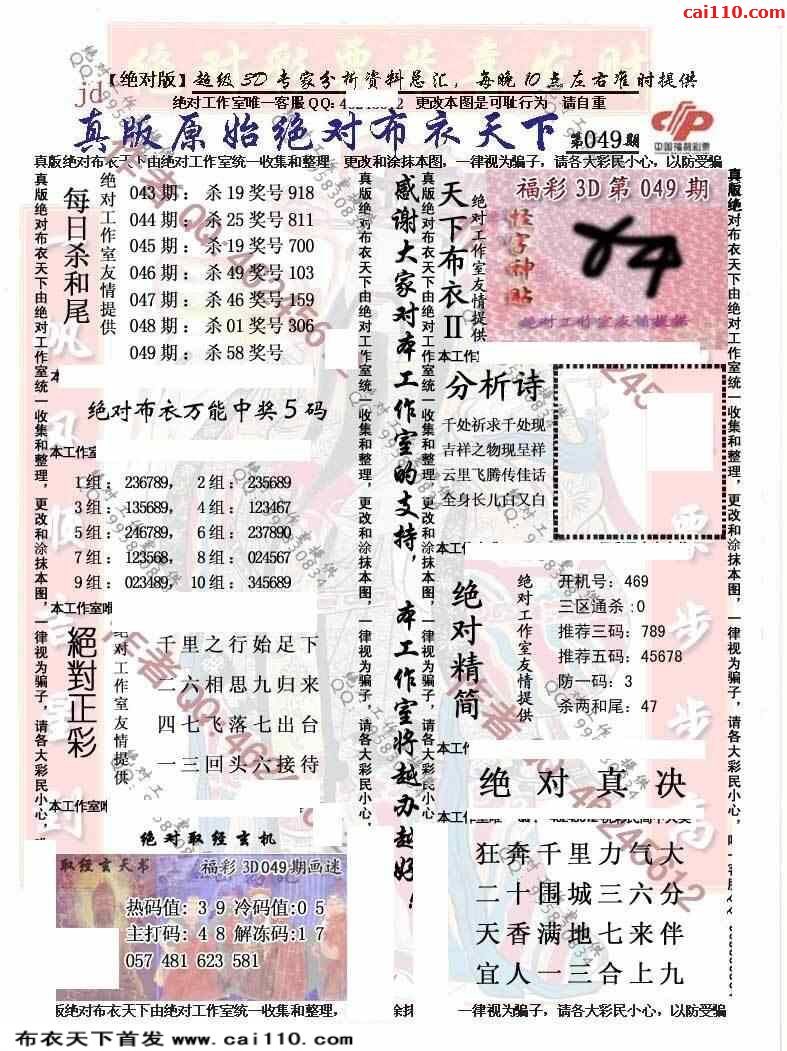 cai110.com
【绝对版】超级3D专家分析资料总汇，每晚10点左右准时提供
jd
绝对工作室唯一客服QQ: 46245612 更改本图是可耻行为 请自重
真版原始绝对布衣天下 第049期
中国福利彩票
真版绝对布衣天下由绝对工作室统一收集和整理 更改和涂抹本图，一律视为骗子，请各大彩民小心，以防受骗
真版绝对布衣天下由绝对工作室统一收集和整理，更改和涂抹本图，一律视为骗子，请各大彩民小心，
每日杀和尾
绝对工作室友情提供
043期：杀19奖号918
044期：杀25奖号811
045期：杀19奖号700
046期：杀49奖号103
047期：杀46奖号159
048期：杀01奖号306
049期：杀58奖号
绝对布衣万能中奖5码
本工作室
1组：236789， 2组：235689
3组：135689， 4组：123467
5组：246789， 6组：237890
7组：123568， 8组：024567
9组：023489， 10组：345689
本工作室唯
絕對正彩
绝对工作室友情提供
千里之行始足下
二六相思九归来
四七飞落七出台
一三回头六接待
本工作室唯
绝对取经玄机
取经玄天书 福彩3D049期画迷
热码值: 3 9 冷码值:0 5
主打码: 4 8 解冻码:1 7
057 481 623 581
真版绝对布衣天下由绝对工作室统一收集和整理，更改和涂抹本图，一律视为骗子，请各大彩民小心，
感谢大家对本工作室的支持，本工作室将越办越好！
真版绝对布衣天下由绝对工作室统一收集和整理，更改和涂抹本图，一律视为骗子，请各大彩民小心，
天下布衣II
绝对工作室友情提供
福彩3D第049期
怪字神贴
绝对工作室友情提供
本工作
分析诗
千处祈求千处现
吉祥之物现呈祥
云里飞腾传佳话
全身长儿白又白
本工作
绝对精简
绝对工作室友情提供
开机号：469
三区通杀:0
推荐三码：789
推荐五码：45678
防一码：3
杀两和尾：47
本工作
绝对真决
狂奔千里力气大
二十围城三六分
天香满地七来伴
宜人一三合上九
真版绝对布衣天下由绝对工作室统一收集和整理，更改和涂抹本图，一律视为骗子，请各大彩民小心，
版绝对布衣天下由绝对工作室统一收集和整理，
一律视为骗子，请各大彩民小心，以防受骗
布衣天下首发 www.cai110.com